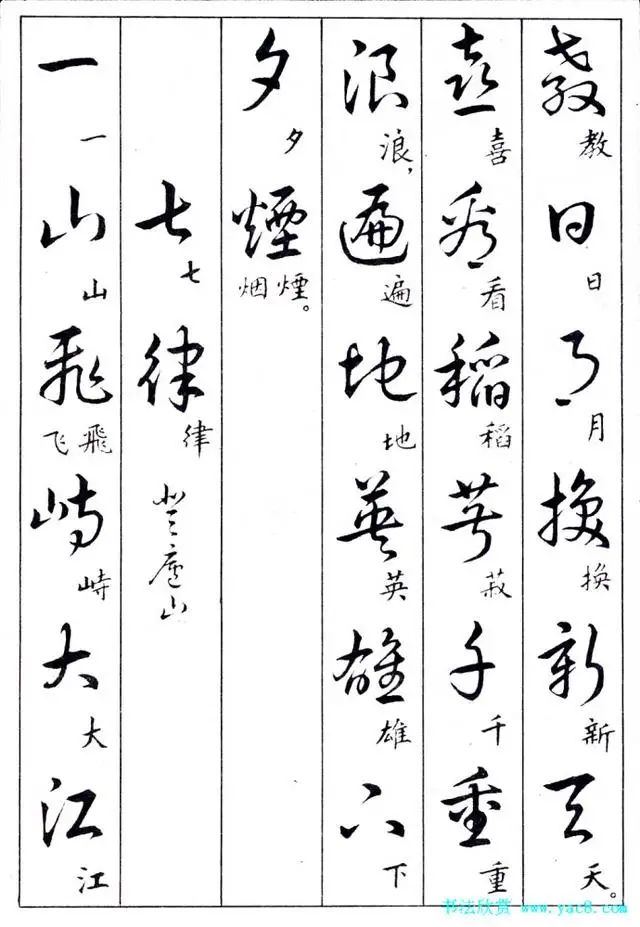 教日月换新天
教日月换新天。
喜看稻菽千重
喜看稻菽千重
浪遍地英雄下
浪，遍地英雄下
夕煙
夕烟煙。
七律 登廬山
七律
一山飛峙大江
一山飞飛峙大江
书法欣赏 www.yac8.com